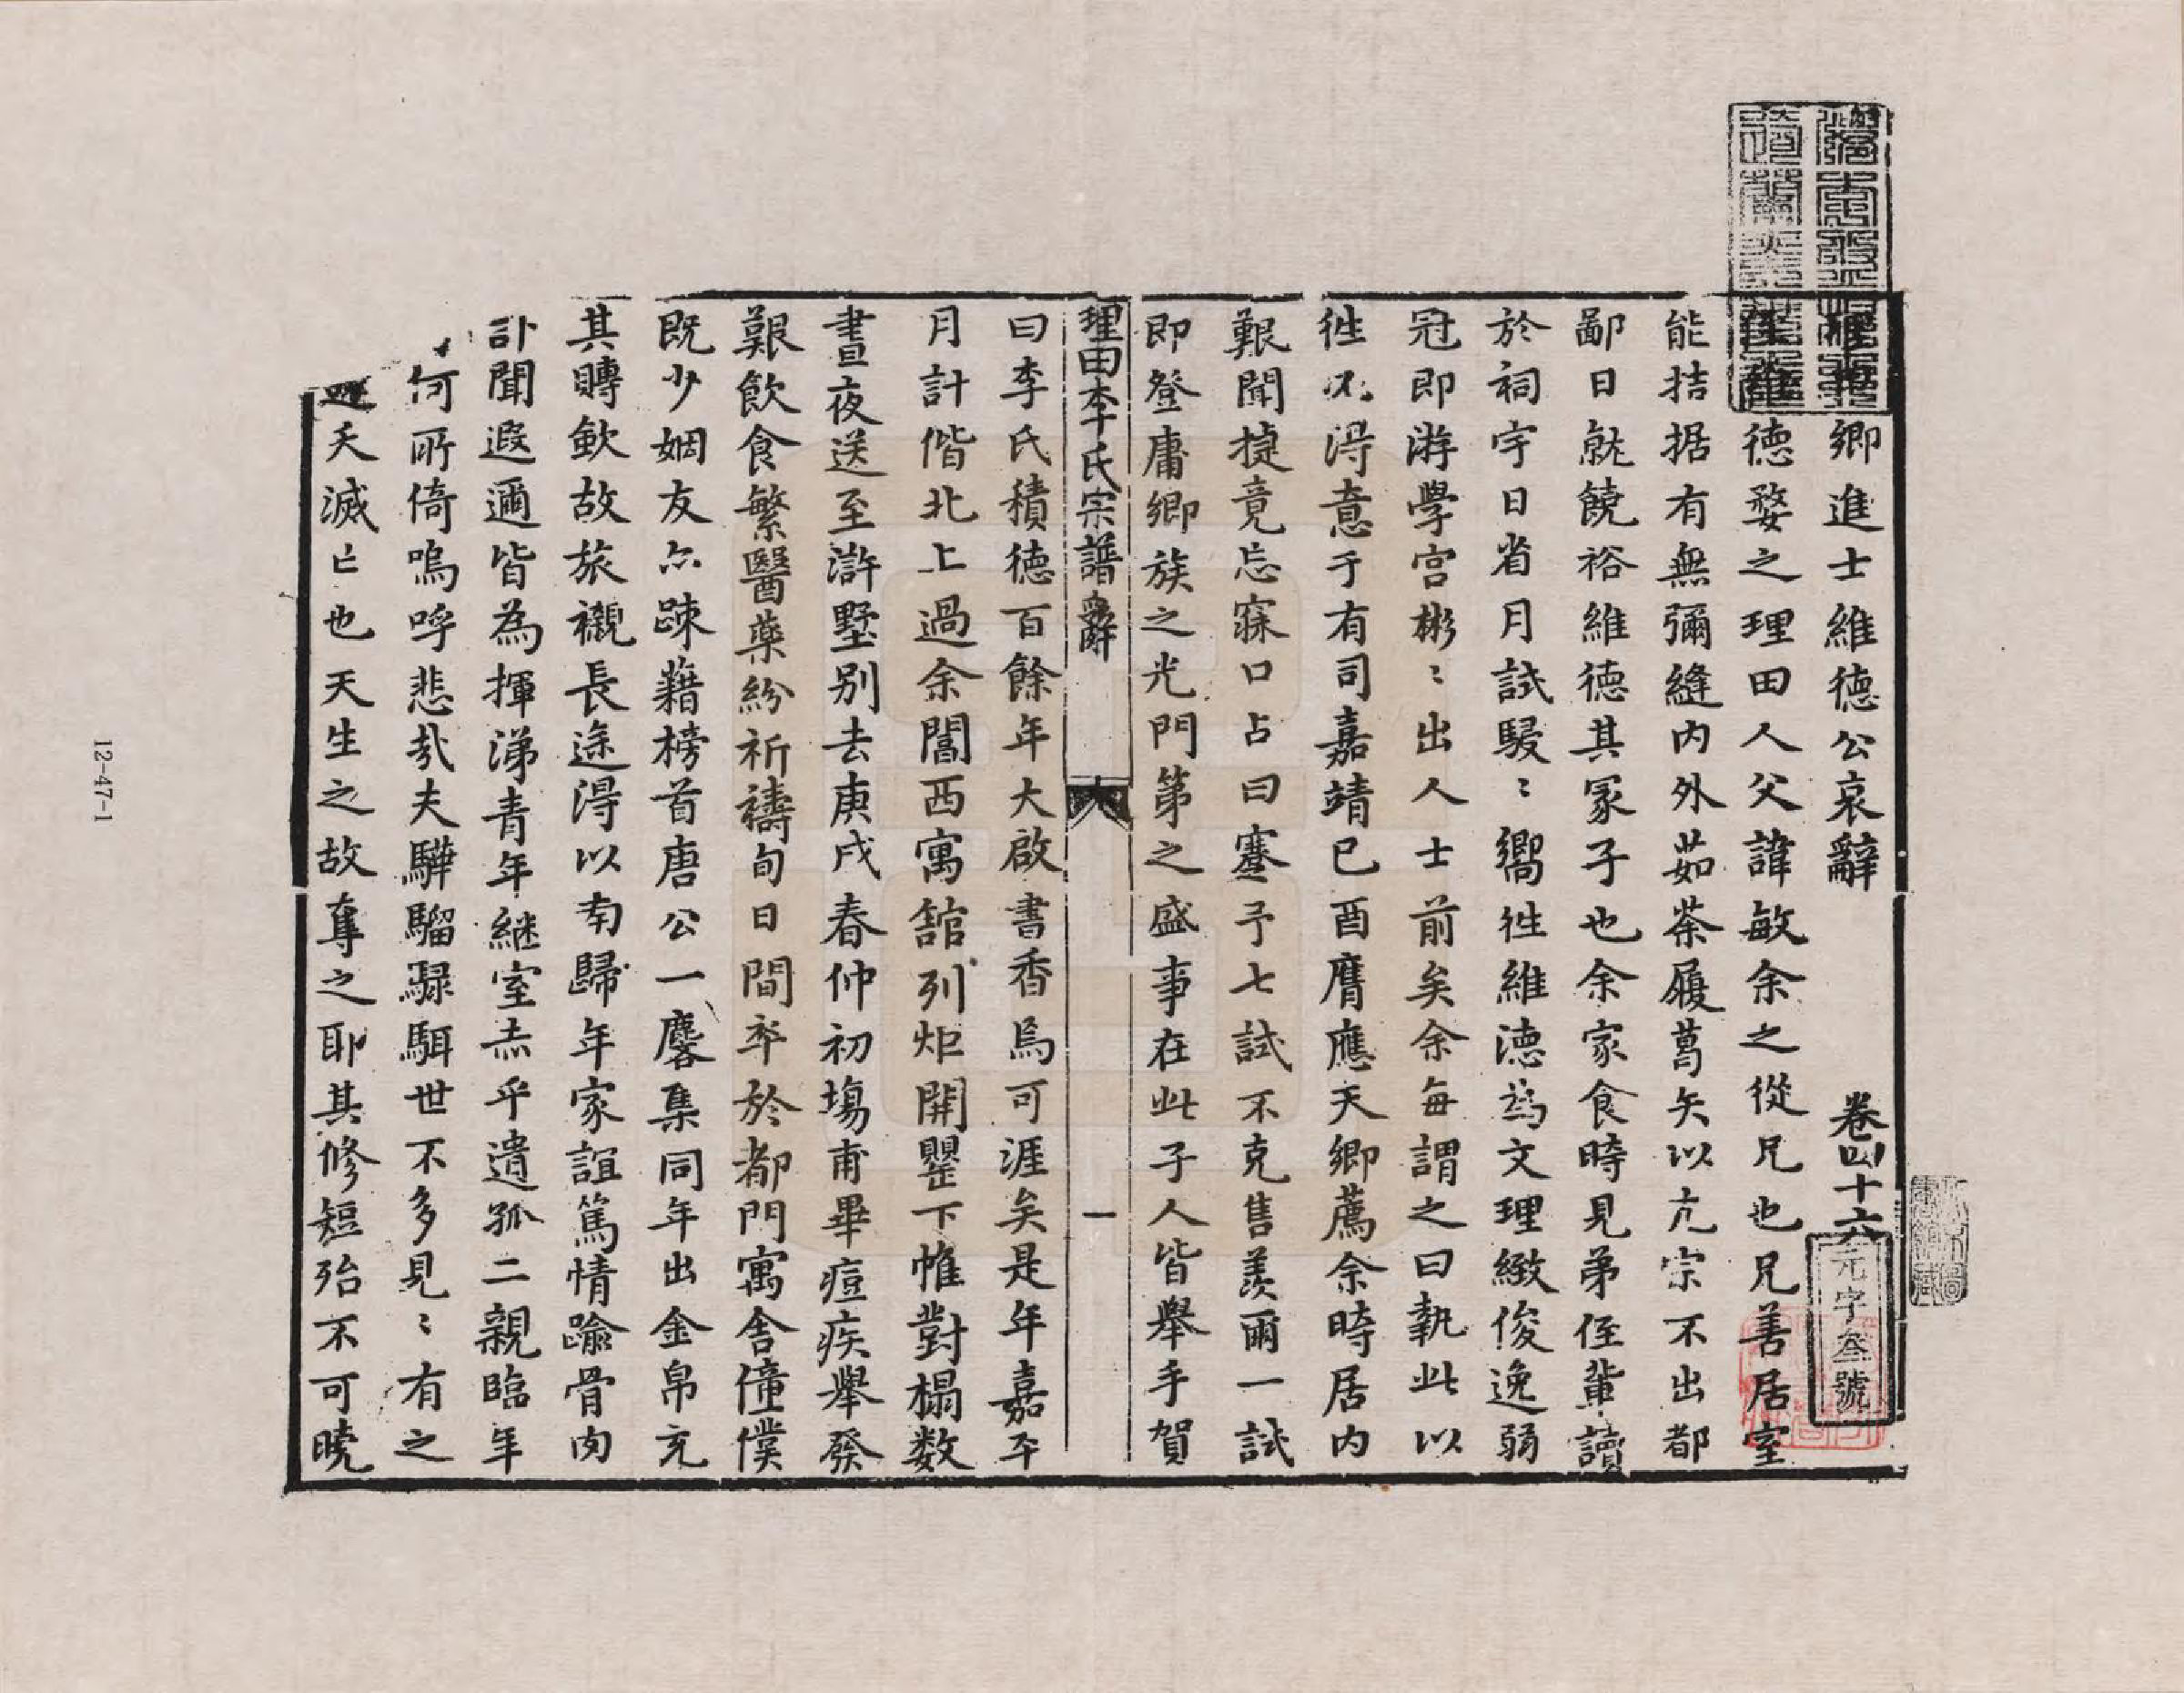 鄉進士維德公哀辭 卷四十六
元字叁號
德婺之理田人父諱敏余之從兄也兄善居室
能拮据有無彌縫內外茹荼履葛矢以亢宗不出都
鄙日就饒裕維德其冢子也余家食時見弟侄輩讀
於祠宇日省月試駸〻嚮往維德為文理緻俊逸弱
冠即游學宮彬〻出人士前矣余每謂之曰執此以
往不得意于有司嘉靖己酉膺應天鄉薦余時居內
艱聞捷竟忘寐口占曰蹇予七試不克售羨爾一試
即登庸鄉族之光門第之盛事在此子人皆舉手賀
理田李氏宗譜 辭 一
曰李氏積德百餘年大啟書香烏可涯矣是年嘉平
月計偕北上過余閶西寓舘列炬開罌下帷對榻数
晝夜送至滸墅别去庚戌春仲初塲甫畢痘疾舉發
艱飲食繁醫藥紛祈禱旬日間卒於都門寓舍僮僕
既少姻友亦踈藉榜首唐公一麐集同年出金帛充
其賻歛故旅櫬長途得以南歸年家誼篤情踰骨肉
訃聞遐邇皆為揮涕青年継室赤乎遺孤二親臨年
何所倚嗚呼悲㢤夫驊騮騄駬世不多見〻有之
天滅亡也天生之故奪之耶其修短殆不可曉
12-47-1